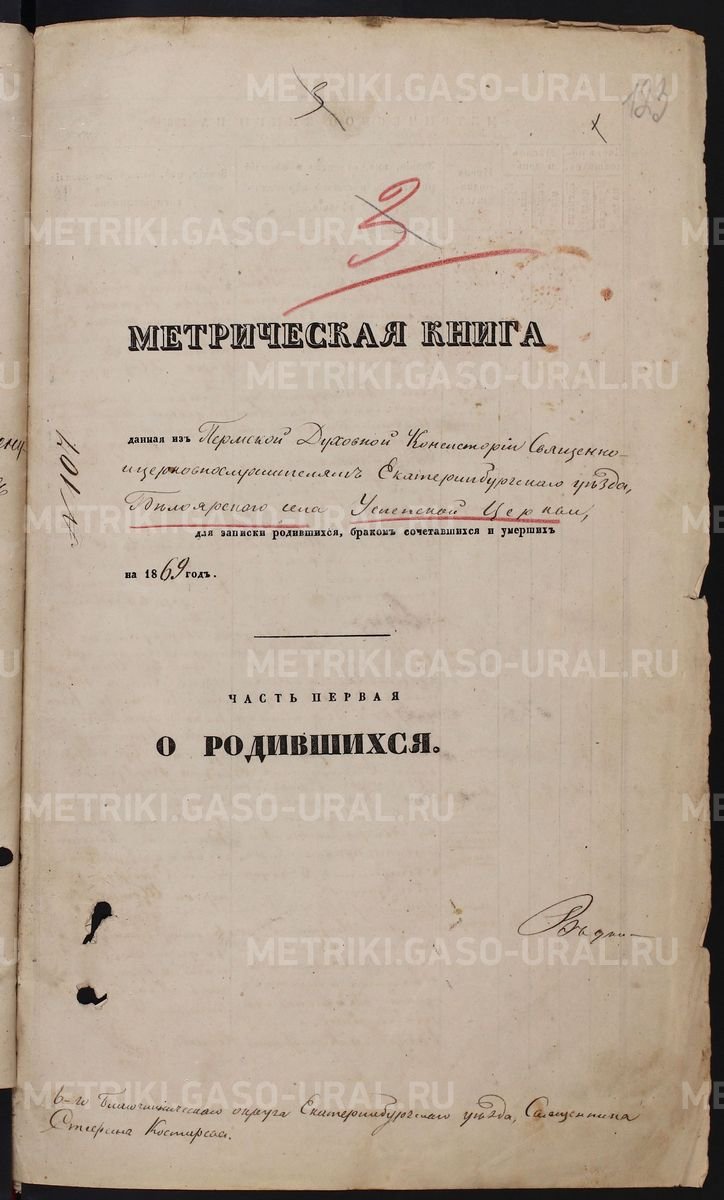 3
123
3
МЕТРИЧЕСКАЯ КНИГА
данная изъ Пермской Духовной Консисторіи Священно-
ицерковнослужителямъ Екатеринбургскаго уѣзда,
Бѣлоярского села Успенской Церкви,
для записки родившихся, бракомъ сочетавшихся и умершихъ
на 1869 годъ.
ЧАСТЬ ПЕРВАЯ
О РОДИВШИХСЯ.
6-го Благочинническаго округа Екатеринбургскаго уѣзда, Священника
Костарева.
METRIKI.GASO-URAL.RU